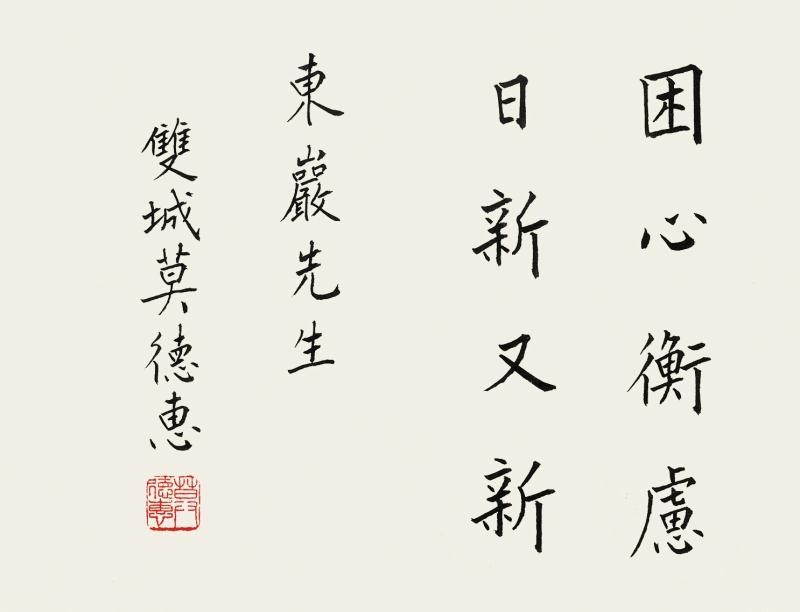 困心衡慮
日新又新
東巖先生
雙城莫德惠
莫德惠